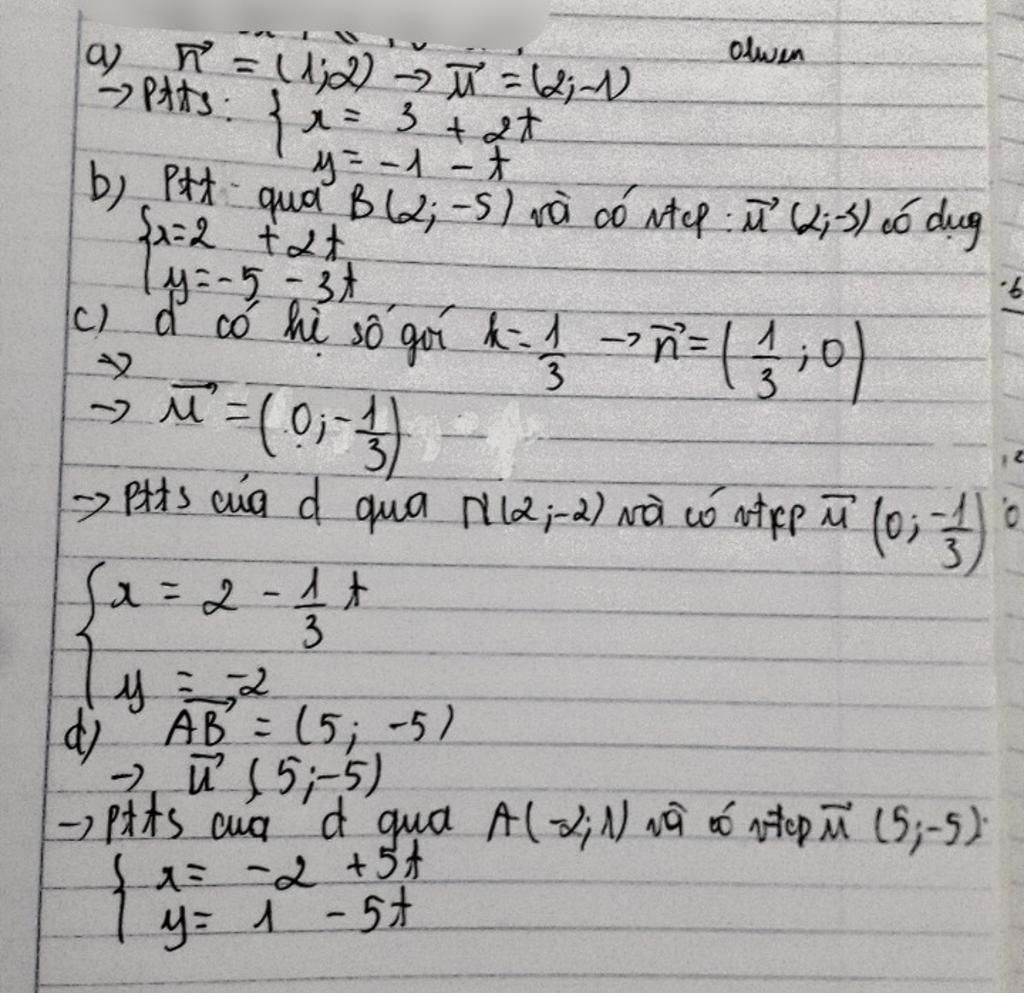 Olwen
a) n⃗ = (1;2) → u⃗ = (2;-1)
→ Ptts: { x = 3 + 2t
y = -1 - t
b) Ptt qua B(2; -5) và có vtcp: u⃗ (2;-3) có dạng
{ x=2 + 2t
y=-5 - 3t
c) d có hệ số góc k = 1/3 → n⃗ = (1/3 ; 0)
→
→ u⃗ = (0; -1/3)
→ Ptts của d qua N(2;-2) và có vtcp u⃗ (0; -1/3)
{ x = 2 - 1/3 t
y = -2
d) AB⃗ = (5; -5)
→ u⃗ (5;-5)
→ Ptts cua d qua A(-2;1) và có vtcp u⃗ (5;-5).
{ x = -2 + 5t
y = 1 - 5t